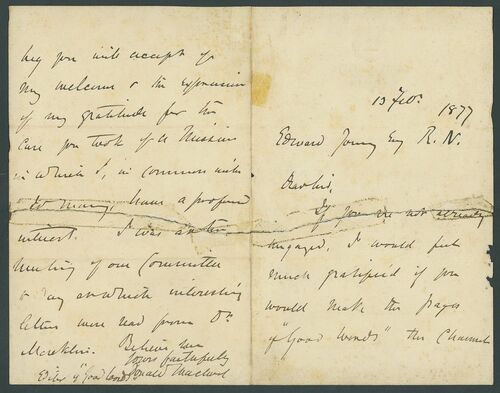 13 Feb. 1877
Edward Young Esq R.N.
Dear Sir,
If you are not already
engaged, I would feel
much gratified if you
would make the pages
of "Good Words" the Channel
beg you will accept of
my welcome & the expression
of my gratitude for the
care you took of a Mission
in which I, in common with
so many, have a profound
interest. I was at the
Meeting of our Committee
to day at which interesting
letters were read from Dr.
Macklin. Believe me
Yours faithfully
Donald Macleod
Editor of "Good Words"